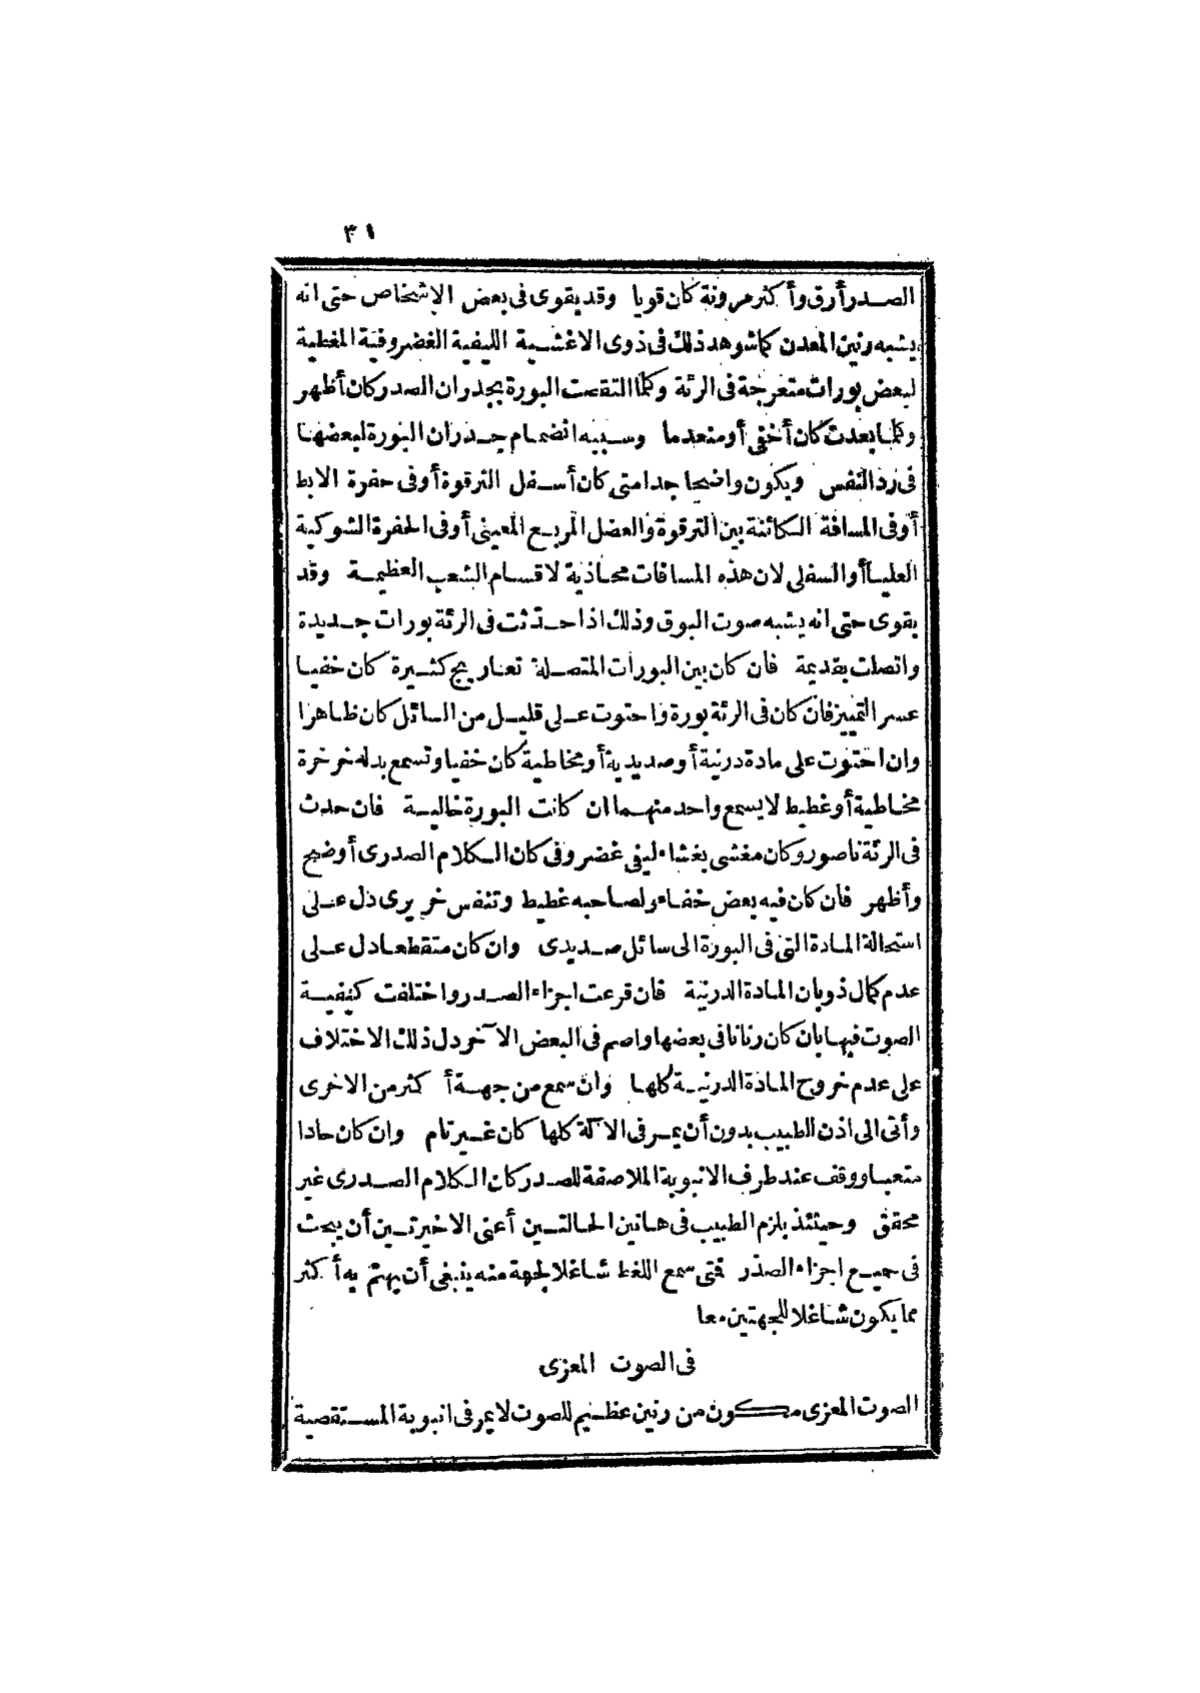 ٣١
الصدر أرق وأكثر مرونة كان قويا وقد يقوى فى بعض الاشخاص حتى انه
يشبه رنين المعدن كما شوهد ذلك فى ذوى الاغشية الليفية الغضروفية المغطية
لبعض بورات متعرجة فى الرئة وكلما التقصت البورة بجدران الصدر كان أظهر
وكلما بعدت كان أخفى أو منعدما وسببه انضمام جدران البورة لبعضها
فى رد النفس ويكون واضحا جدا متى كان أسفل الترقوة أو فى حفرة الابط
أو فى المسافة الكائنة بين الترقوة والعضل المربع المعينى أو فى الحفرة الشوكية
العليا أو السفلى لان هذه المسافات محاذية لاقسام الشعب العظيمة وقد
يقوى حتى انه يشبه صوت البوق وذلك اذا حدثت فى الرئة بورات جديدة
واتصلت بقديمة فان كان بين البورات المتصلة تعاريج كثيرة كان خفيا
عسر التمييز فان كان فى الرئة بورة واحتوت على قليل من السائل كان ظاهرا
وان احتوت على مادة درنية أو صديدية أو مخاطية كان خفيا وتسمع بدله خرخرة
مخاطية أو غطيط لا يسمع واحد منهما ان كانت البورة خالية فان حدث
فى الرئة ناصور وكان مغشى بغشاء ليفى غضروفى كان الكلام الصدرى أوضح
وأظهر فان كان فيه بعض خفاء ولصاحبه غطيط وتنفس خريرى دل على
استحالة المادة التى فى البورة الى سائل صديدى وان كان متقطعا دل على
عدم كمال ذوبان المادة الدرنية فان قرعت اجزاء الصدر واختلفت كيفية
الصوت فيها بان كان رنانا فى بعضها واصم فى البعض الآخر دل ذلك الاختلاف
على عدم خروج المادة الدرنية كلها وان سمع من جهة أكثر من الاخرى
وأتى الى اذن الطبيب بدون أن يمر فى الآلة كلها كان غير تام وان كان حادا
متعبا ووقف عند طرف الانبوبة الملاصقة للصدر كان الكلام الصدرى غير
محقق وحينئذ يلزم الطبيب فى هاتين الحالتين أعنى الاخيرتين أن يبحث
فى جميع اجزاء الصدر فتى سمع اللغط شاغلا لجهة منه ينبغى أن يهتم به أكثر
مما يكون شاغلا للجهتين معا
فى الصوت المعزى
الصوت المعزى مكون من رنين عظيم للصوت لا يمر فى انبوبة المستقصية